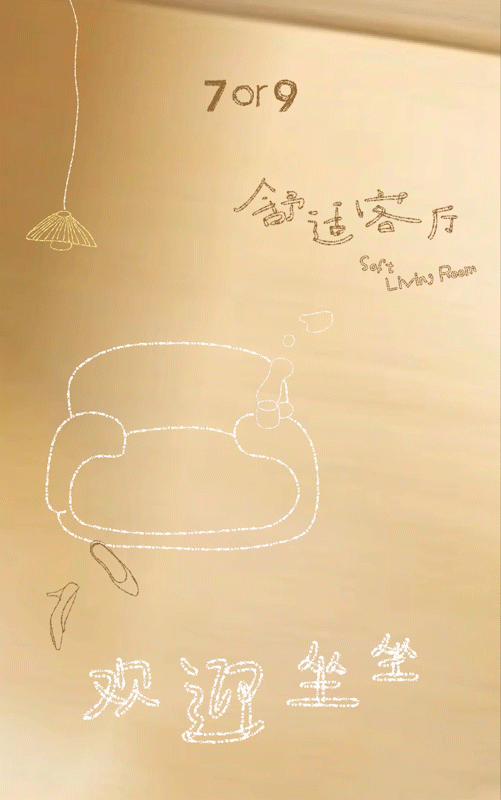 7or9
舒适客厅
Soft
Living Room
欢迎坐坐